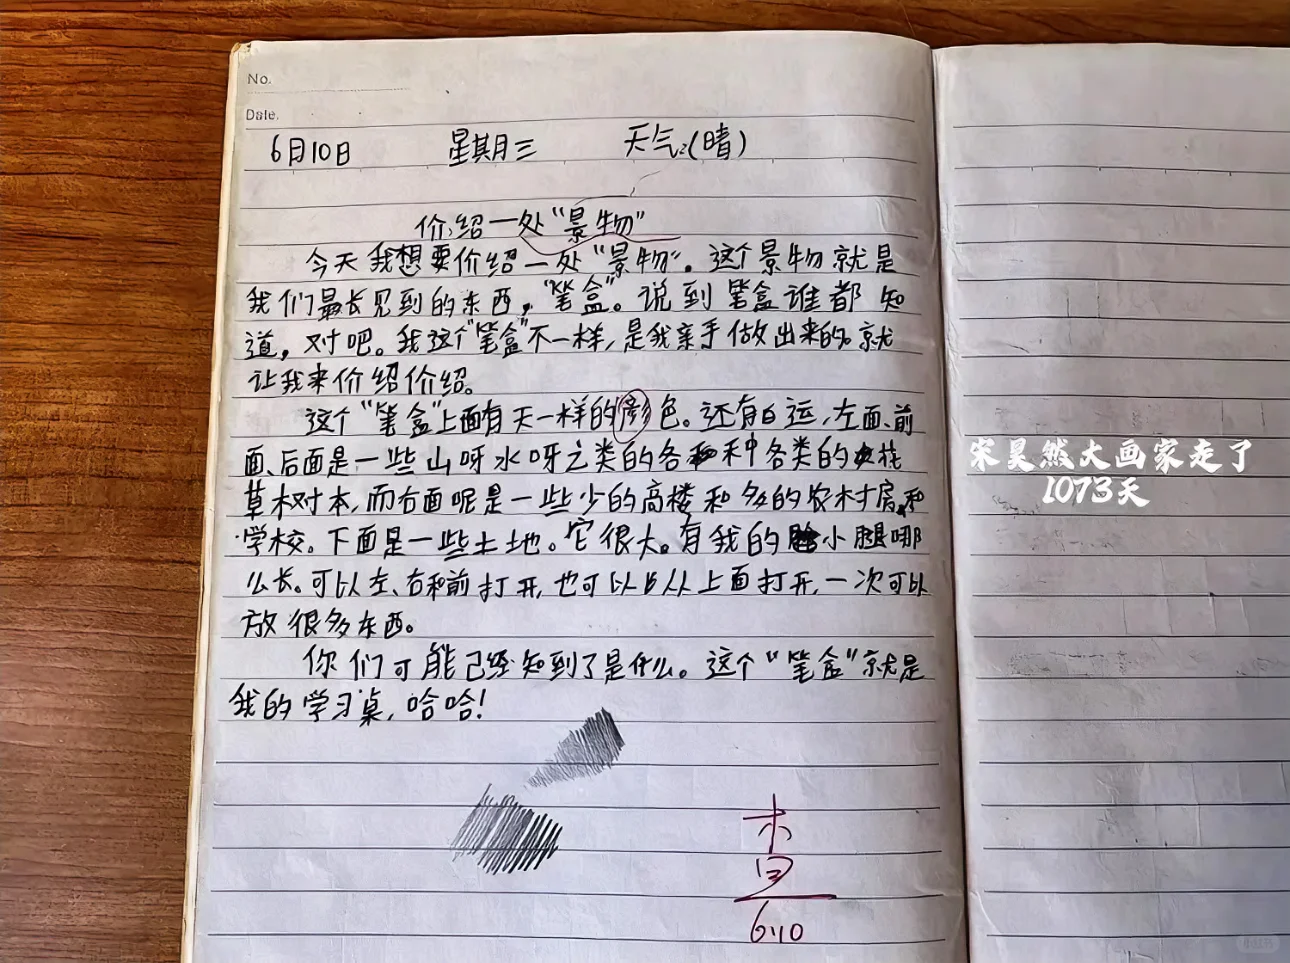 No.
Date.
6月10日 星期三 天气:(晴)
价绍一处“景物”
今天我想要价绍一处“景物”。这个景物就是
我们最长见到的东西,“笔盒”。说到笔盒谁都知
道,对吧。我这个“笔盒”不一样,是我亲手做出来的。就
让我来价绍价绍。
这个“笔盒”上面有天一样的颜色。还有白运,左面、前
面、后面是一些山呀水呀之类的各种各类的花
草树本,而右面呢是一些少的高楼和多的农村房和
学校。下面是一些土地。它很大。有我的小腿哪
么长。可以左、右和前打开,也可以从上面打开,一次可以
放很多东西。
你们可能已经知到了是什么。这个“笔盒”就是
我的学习桌,哈哈!
查
6.10
宋昊然大画家走了
1073天